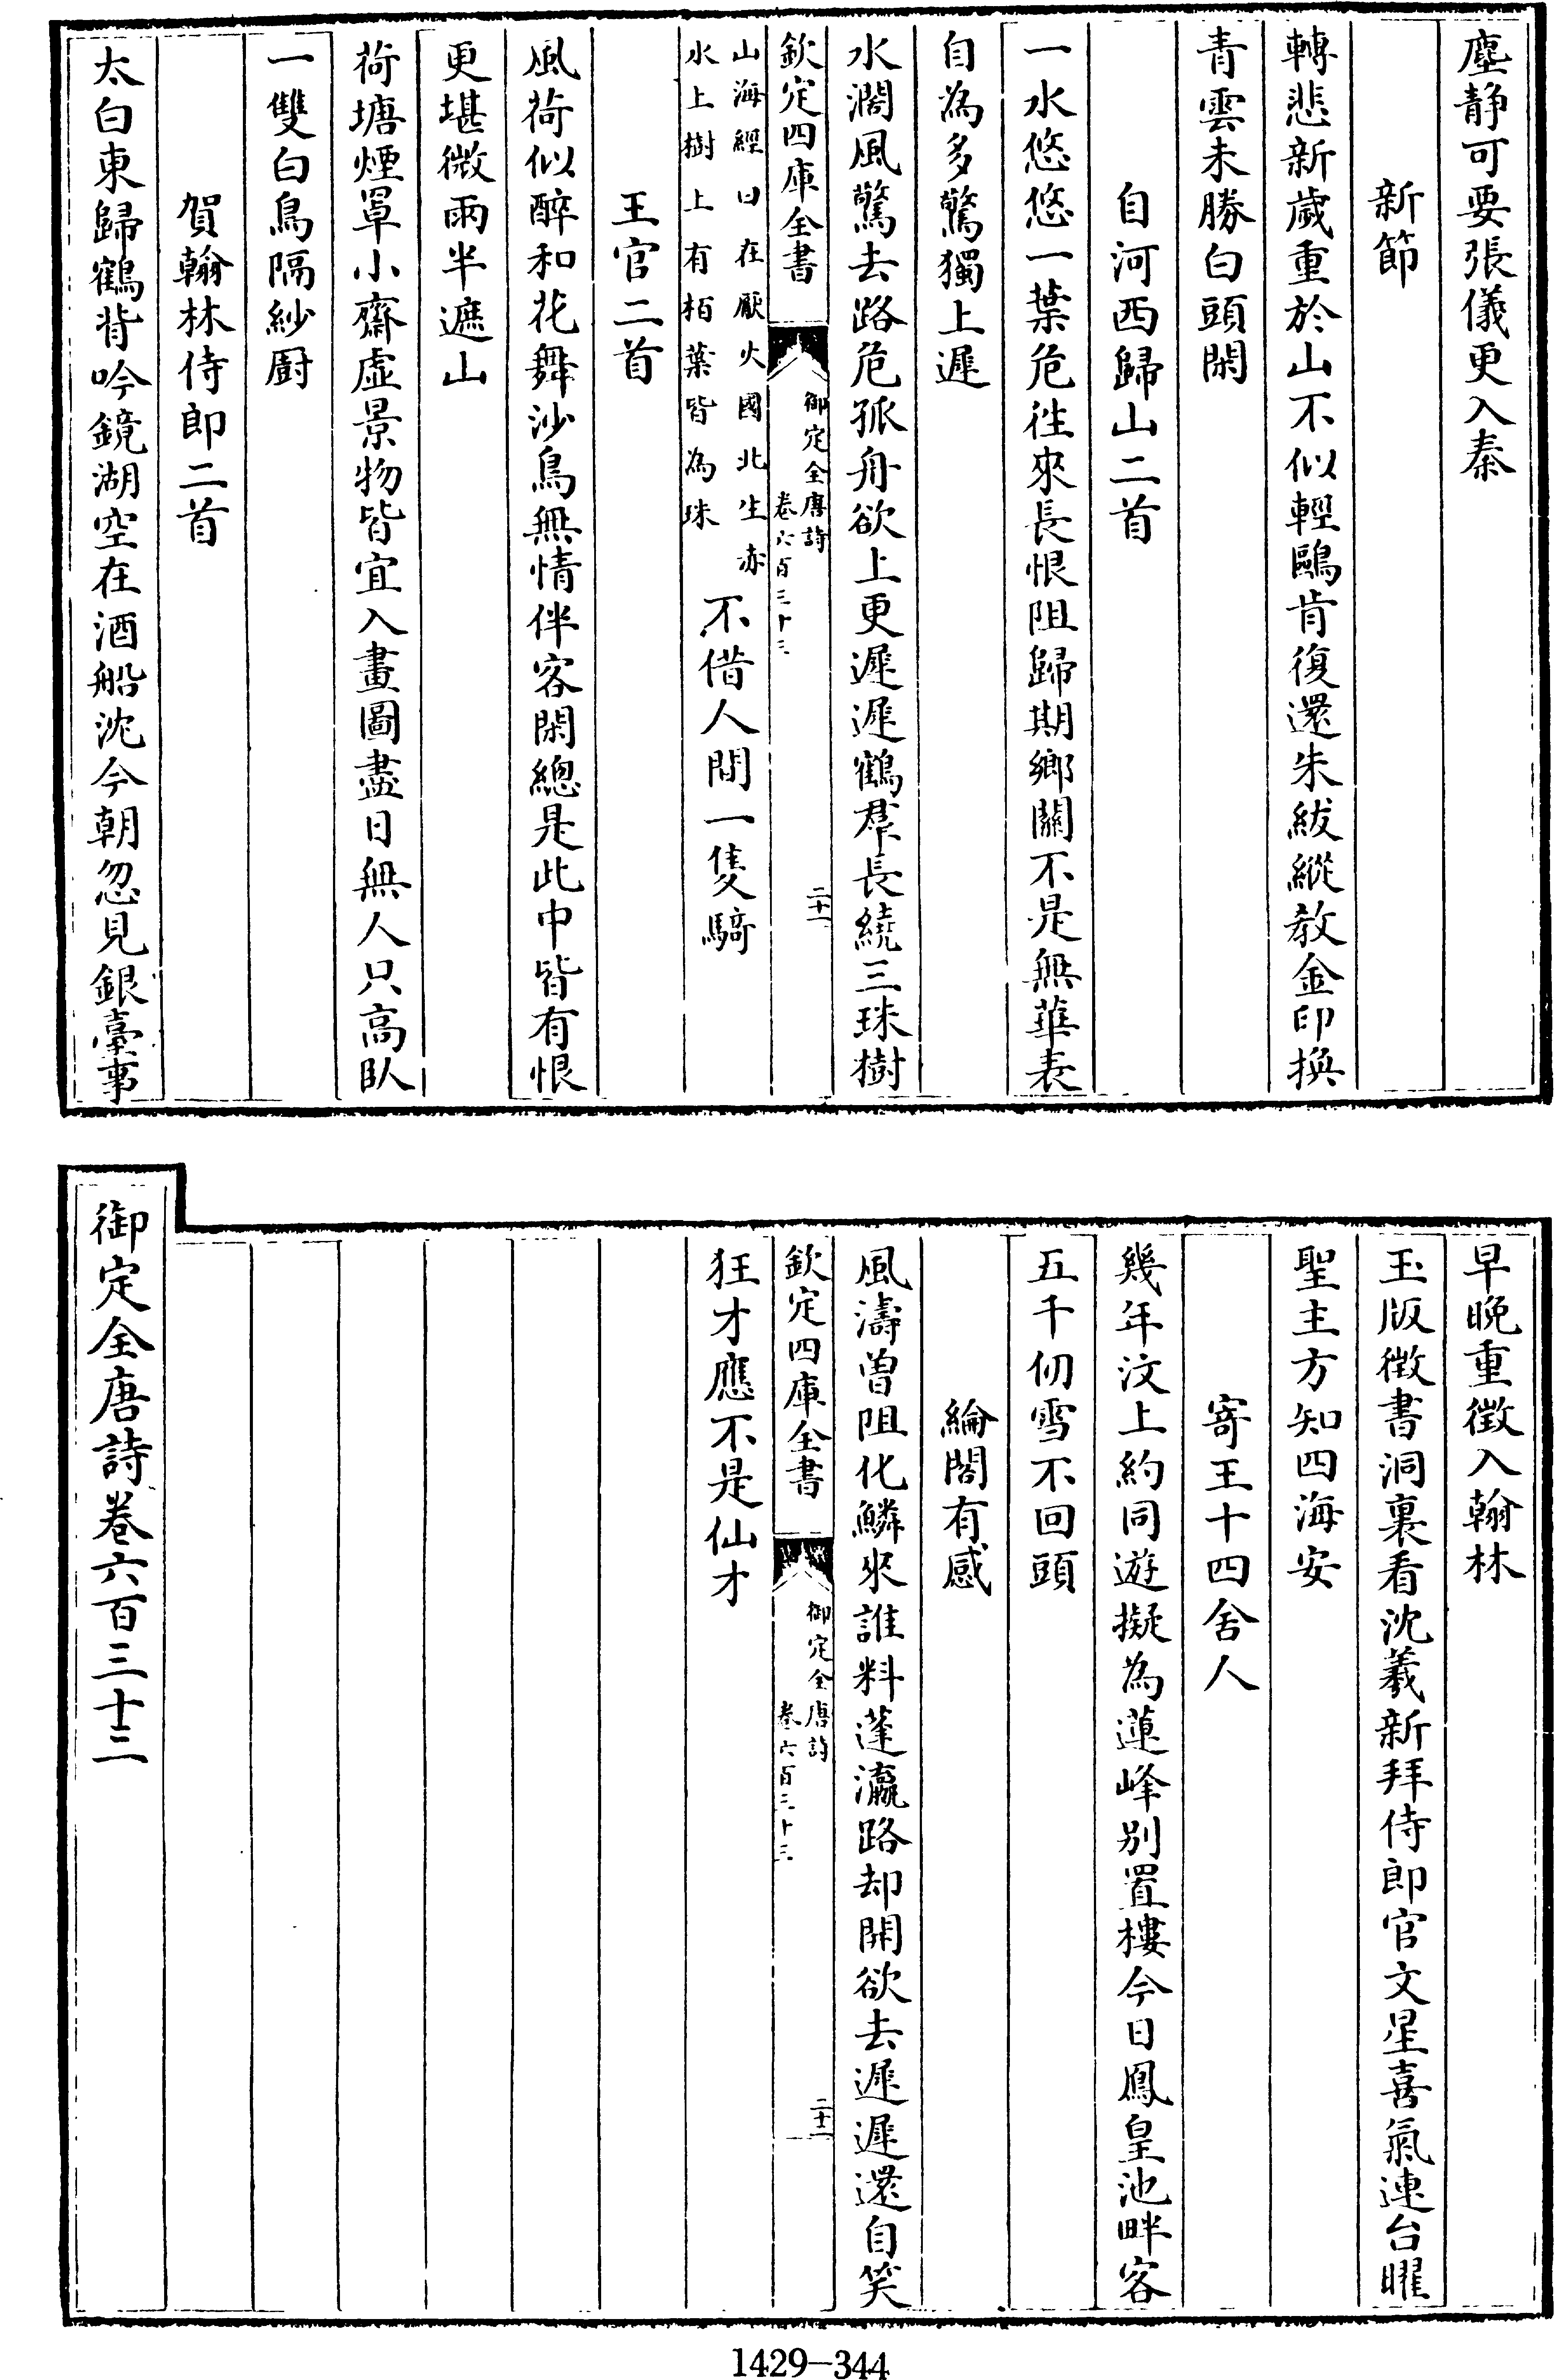 塵静可要張儀更入秦
新節
轉悲新歲重於山不似輕鷗肯復還朱紱縱教金印換
青雲未勝白頭閑
自河西歸山二首
一水悠悠一葉危徃來長恨阻歸期鄉關不是無華表
自為多驚獨上遲
水濶風驚去路危孤舟欲上更遲遲鶴羣長繞三珠樹
欽定四庫全書
御定全唐詩
卷六百三十三
二十一
山海經曰在厭火國北生赤
水上樹上有栢葉皆為珠
不借人間一隻騎
王官二首
風荷似醉和花舞沙鳥無情伴客閑總是此中皆有恨
更堪微雨半遮山
荷塘煙罩小齋虛景物皆宜入畫圖盡日無人只高臥
一雙白鳥隔紗厨
賀翰林侍郎二首
太白東歸鶴背吟鏡湖空在酒船沈今朝忽見銀臺事
早晚重徵入翰林
玉版徵書洞裏看沈羲新拜侍郎官文星喜氣連台曜
聖主方知四海安
寄王十四舍人
幾年汶上約同遊擬為蓮峰別置樓今日鳳皇池畔客
五千仞雪不回頭
綸閣有感
風濤曽阻化鱗來誰料蓬瀛路却開欲去遲遲還自笑
欽定四庫全書
御定全唐詩
卷六百三十三
二十二
狂才應不是仙才
御定全唐詩卷六百三十三
1429-344